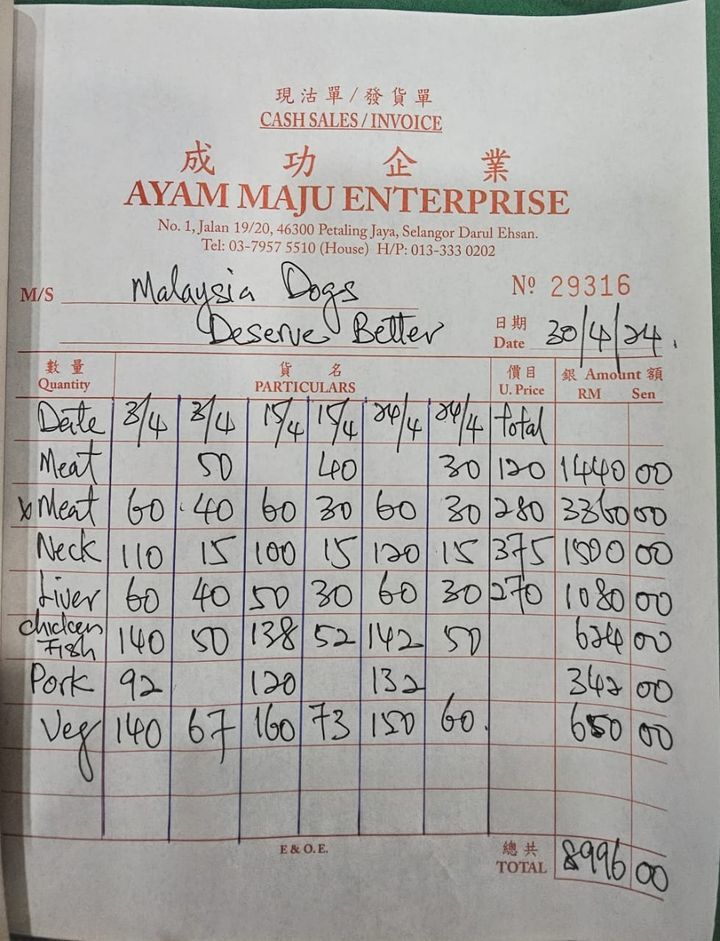 現沽單/發貨單
CASH SALES / INVOICE
成功企業
AYAM MAJU ENTERPRISE
No. 1, Jalan 19/20, 46300 Petaling Jaya, Selangor Darul Ehsan.
Tel: 03-7957 5510 (House) H/P: 013-333 0202
M/S Malaysia Dogs Nº 29316
Deserve Better 日期 Date 30/4/24.
數量 貨名 價目 銀 Amount 額
Quantity PARTICULARS U. Price RM Sen
Date 3/4 3/4 15/4 15/4 24/4 24/4 total
Meat 50 40 30 120 1440 00
x Meat 60 40 60 30 60 30 280 3360 00
Neck 110 15 100 15 120 15 375 1500 00
Liver 60 40 50 30 60 30 270 1080 00
chicken Fish 140 50 138 52 142 50 624 00
Pork 92 120 132 342 00
Veg 140 67 160 73 150 60. 650 00
E & O. E. 總共 TOTAL 8996 00